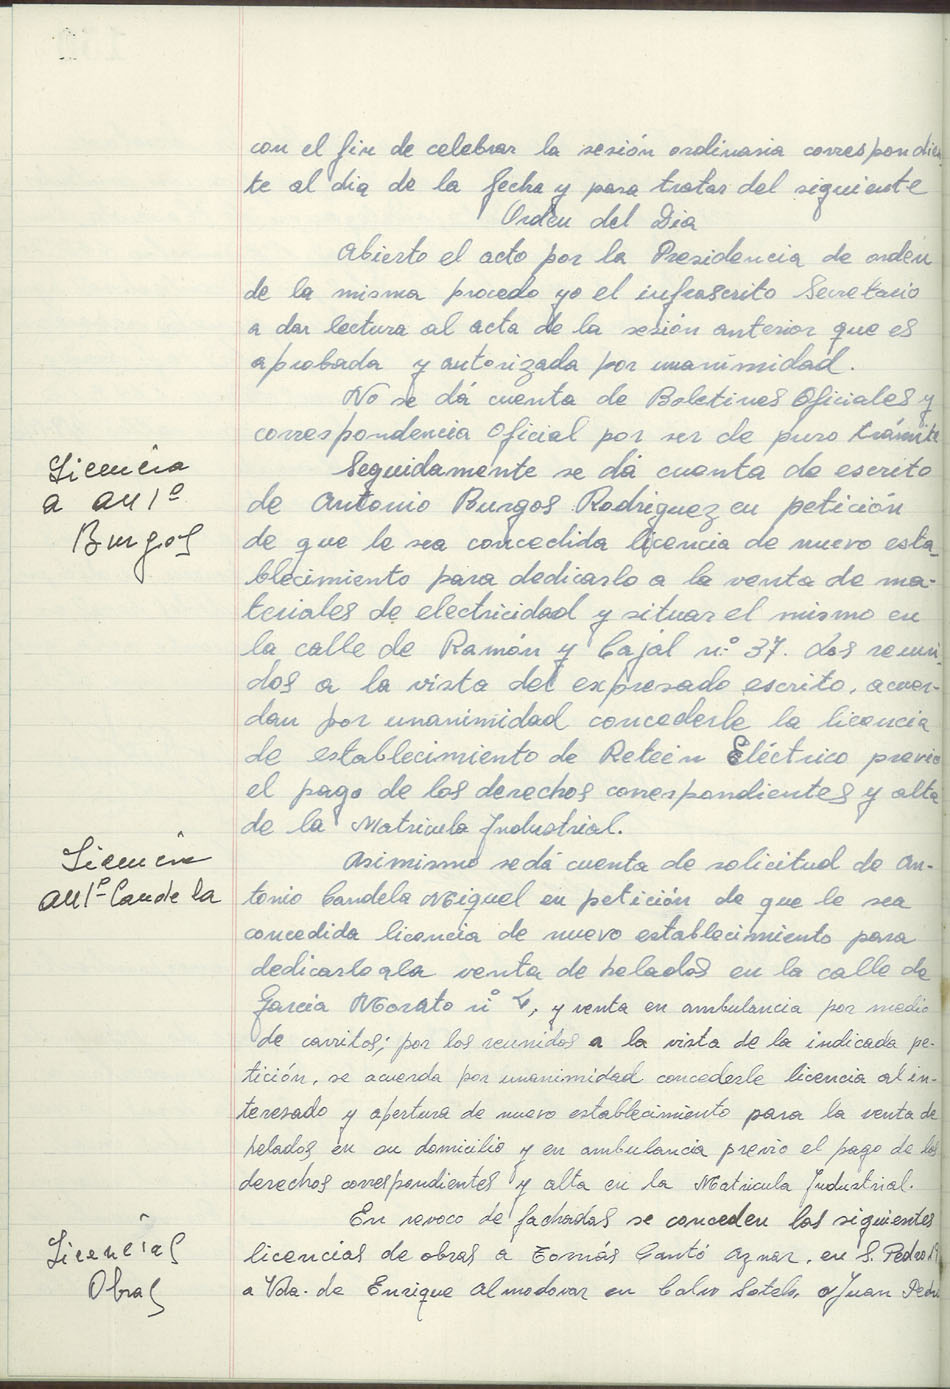 con el fin de celebrar la sesión ordinaria correspondien
te al dia de la fecha y para tratar del siguiente
Orden del Dia
Abierto el acto por la Presidencia de orden
de la misma procedo yo el infrascrito Secretario
a dar lectura al acta de la sesión anterior que es
aprobada y autorizada por unanimidad.
No se dá cuenta de Boletines Oficiales y
correspondencia Oficial por ser de puro trámite
Licencia
a Antº
Burgos
Seguidamente se dá cuenta de escrito
de Antonio Burgos Rodriguez en petición
de que le sea concedida licencia de nuevo esta-
blecimiento para dedicarlo a la venta de ma-
teriales de electricidad y situar el mismo en
la calle de Ramón y Cajal nº 37. Los reuni-
dos a la vista del expresado escrito, acuer-
dan por unanimidad concederle la licencia
de establecimiento de Eléctrico previo
el pago de los derechos correspondientes y alta
de la Matricula Industrial.
Licencia
Antº Candela
Asimismo se dá cuenta de solicitud de An-
tonio Candela Miguel en petición de que le sea
concedida licencia de nuevo establecimiento para
dedicarlo a la venta de helados en la calle de
Garcia Morato nº, y venta en ambulancia por medio
de carritos; por los reunidos a la vista de la indicada pe-
tición, se acuerda por unanimidad concederle licencia al in-
teresado y apertura de nuevo establecimiento para la venta de
helados en su domicilio y en ambulancia previo el pago de los
derechos correspondientes y alta en la Matricula Industrial.
Licencias
Obras
En revoco de fachadas se conceden las siguientes
licencias de obras a Tomás Cantó Aznar, en S. Pedro
a Vda. de Enrique Almodovar en Calvo Sotelo, a Juan Pedro